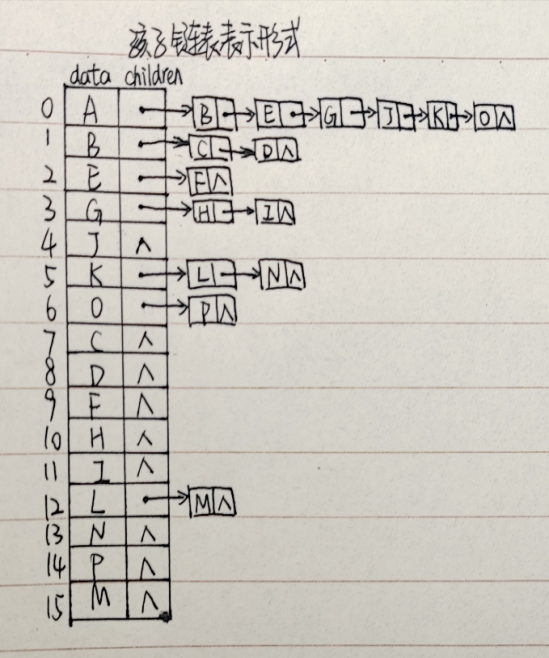 孩子链表表示形式
data children
0 A B E G J K O ∧
1 B C D ∧
2 E F ∧
3 G H I ∧
4 J ∧
5 K L N ∧
6 O P ∧
7 C ∧
8 D ∧
9 F ∧
10 H ∧
11 I ∧
12 L M ∧
13 N ∧
14 P ∧
15 M ∧